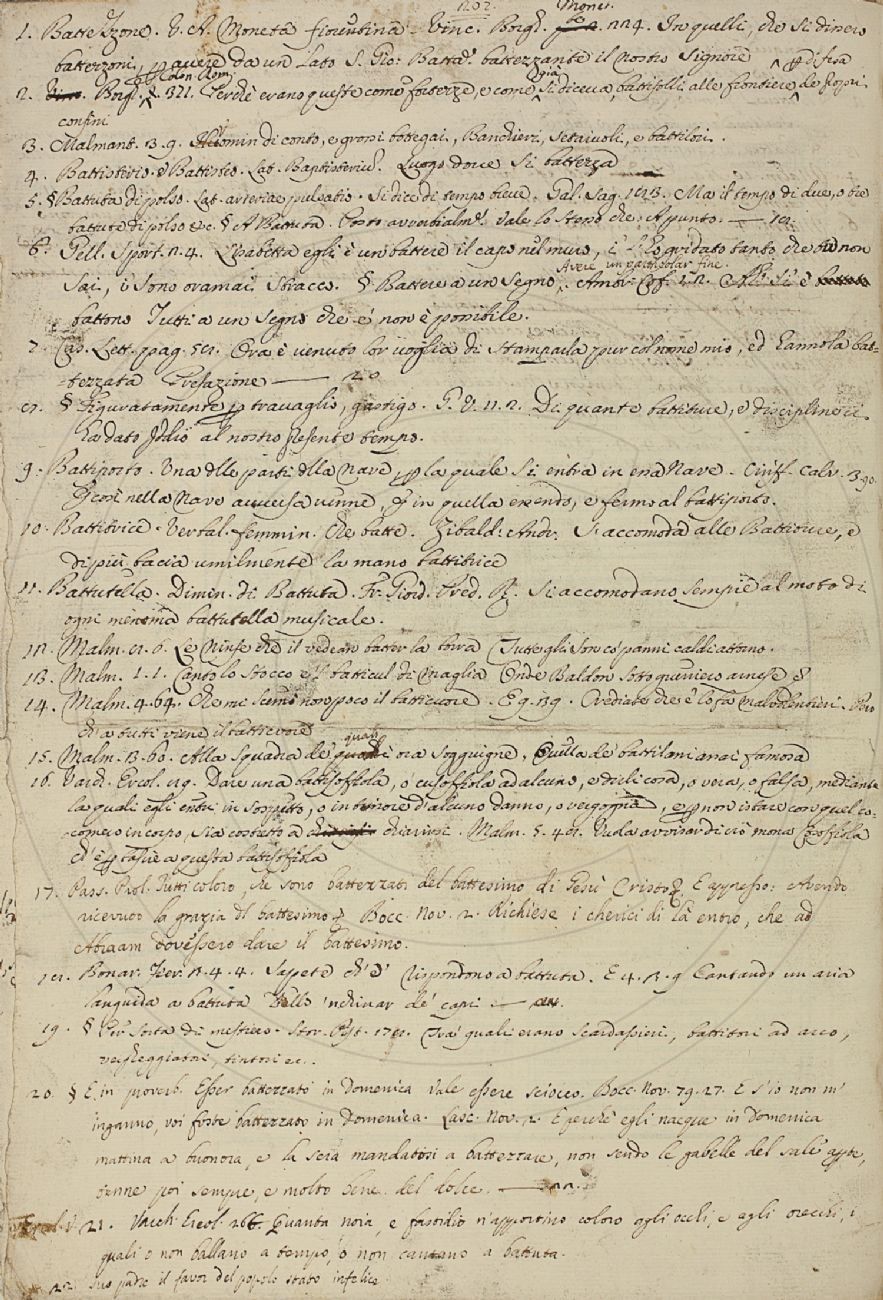 1. Battezzone. V. A. Moneta fiorentina. Vinc. Borgh. Monet. 224. In quelli, che si dicevano
battezzoni, avere da un lato S. Gio: Batta. battezzante il nostro Signore
2. Borgh. Colon. Rom. 321. Perchè erano queste come fortezze, e come già si diceva, battifolli alle frontiere, per difesa de propri
confini
3. Malmant. 3. 9. Uomin di conto, e grossi bottegai, Banchieri, Setaiuoli, e battilori.
4. Battisterio, e Battisteo. Lat. Baptisterium. Luogo dove si battezza
5. § Battuta di polso. Lat. arteriae pulsatio. Si dice di tempo breve. Gal. Sag. Ma il tempo di due, o tre
battute di polso &c. § A Battuta. Posto avverbialmte. vale lo stesso che: Appunto.
6. Gell. Sport. 2. 4. Lisabetta egli è un battere il capo nel muro, i' l'ho gridato tanto che tu non
sai, i' sono oramai stracco. § Battere a un segno, Avere un particolar fine. Ambr. Cof.
battono tutti a un segno che e' non è possibile.
7. Cas. Lett. pag. Ora è venuto lor voglia di stamparla pur col nome mio, ed hannola bat-
-tezzata Prefazione — 20
§ Figuratamente per travaglio, gastigo. G. V. 11. 2. Di quante battiture, e discipline ci
ha dato Iddio al nostro presente tempo.
9. Battiporto. Una delle parti della Nave, per la quale si entra in essa Nave. Ciriff. Calv. 3. 90.
E così nella Nave avversa venne, E in quella essendo, e fermo al battiporto.
10. Battitrice. Verbal. femmin. Che batte. Zibald. Andr. Si accomoda alle Battiture, e
di più bacia umilmente la mano battitrice
11. Battutella. Dimin. di Battuta. Fr. Giord. Pred. R. Si accomodano sempre al moto di
ogni menoma battutella musicale.
12. Malm. 6. Le Ninfe che il vedean batter la borra Tutte gli son co' panni caldi attorno.
13. Malm. 1. 1. Canto lo stocco e 'l batticul di Maglia Onde Baldon sotto guerriero arnese
14. Malm. 4. 64. Che me scemò non poco il batticuore. E 9. 39. Crediate che e' lo fa malvolentieri. Però
ch'a tutti viene il batticuore
15. Malm. 13. 60. Alla squadra de' quali ora soggiugne, Quella de' battilani assai famosa
16. Varch. Ercol. 19. Dare una battisoffiola, o cusoffiola ad alcuno, è dirli cosa, o vera, o falsa, mediante
la quale egli entri in sospetto, o in timore d'alcuno danno, o vergogna, e per non istare con quel co-
comero in corpo, sia costretto a chiarirsi. Malm. 5. Vada avvisar di ciò mona Cosoffiola
ch'è per tale a questa battisoffiola
17. Pass. Prol. Tutti coloro, che sono battezzati del battesimo di Gesù Cristo. E appresso: Avendo
ricevuto la grazia del battesimo. Bocc. Nov. 2. Richiese i cherici di là entro, che ad
Abraam dovessero dare il battesimo.
Bonar. Fier. 4. 4. Sapete ch'e' rispondono a battuta. E Cantando un aria
languida a battuta Dello 'nchinar de' capi
19. § Per sorta di mestiero. Stor. Pist. Tra' quali erano scardassieri, battitori ad arco,
vergheggiatori, tintori ec.
20. § E, in proverb. Esser battezzato in Domenica vale essere sciocco. Bocc. Nov. 79. 27. E s'io non m'
inganno, voi foste battezzato in Domenica. Lasc. Nov. 2. E perchè egli nacque in Domenica
mattina a buonora, e la sera mandatosi a battezzare, non sendo le gabelle del sale apte,
tenne poi sempre, e molto bene del dolce.
21. Varch. Ercol. 266. Quanta noia, e fastidio n'apportino coloro agli occhi, e agli orecchi, i
quali o non ballano a tempo, o non cantano a battuta.
22. suo padre il favor del popolo stato infelice